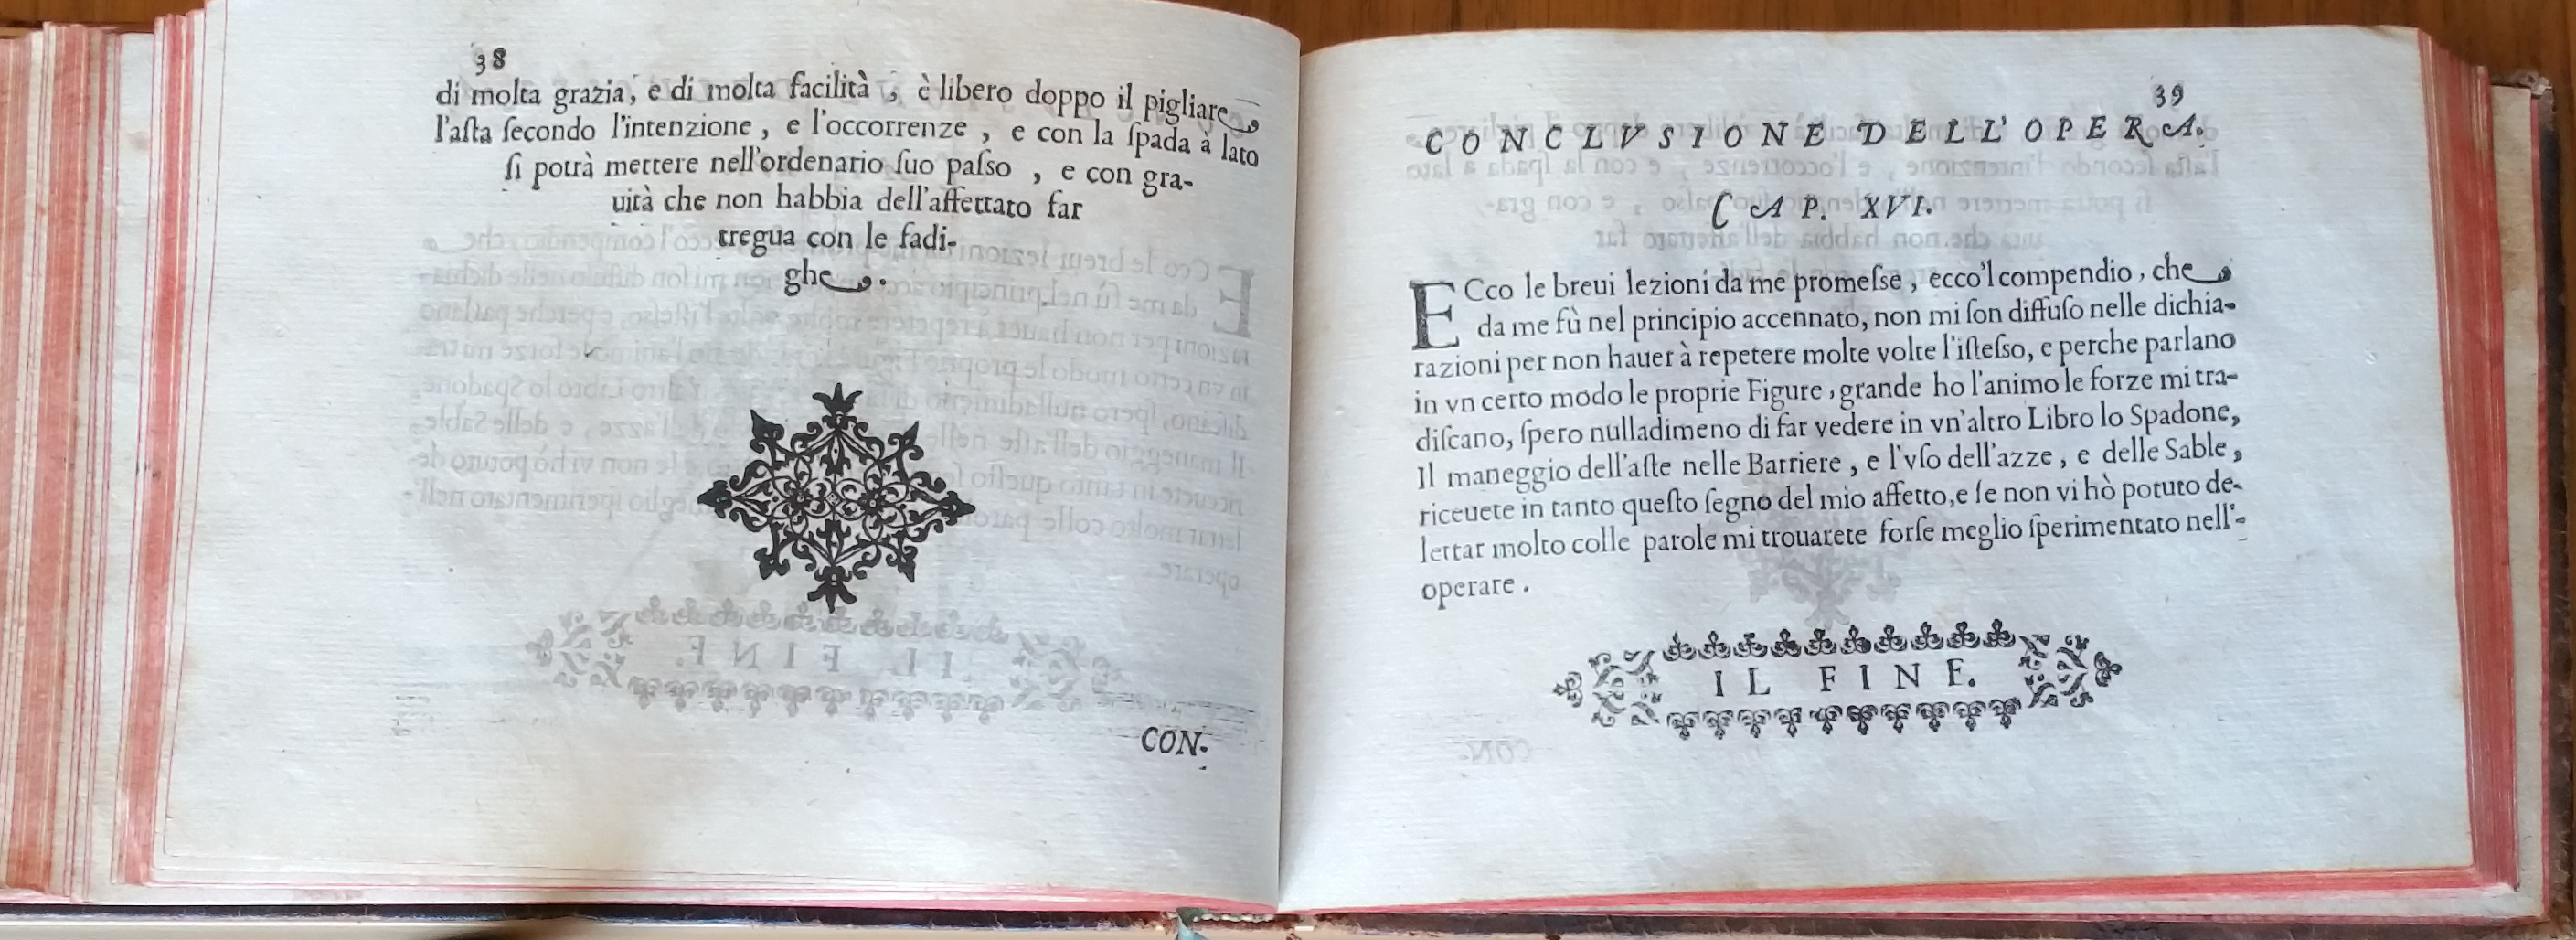 38
di molta grazia, e di molta facilità, è libero doppo il pigliare
l'aſta ſecondo l'intenzione, e l'occorrenze, e con la ſpada à lato
ſi potrà mettere nell'ordenario ſuo paſso, e con gra-
uità che non habbia dell'affettato far
tregua con le fadi-
ghe.
CON-
39
CONCLVSIONE DELL'OPERA.
CAP. XVI.
ECco le breui lezioni da me promeſse, ecco'l compendio, che
da me fù nel principio accennato, non mi ſon diffuſo nelle dichia-
razioni per non hauer à repetere molte volte l'iſteſso, e perche parlano
in vn certo modo le proprie Figure, grande ho l'animo le forze mi tra-
diſcano, ſpero nulladimeno di far vedere in vn'altro Libro lo Spadone,
Il maneggio dell'aſte nelle Barriere, e l'vſo dell'azze, e delle Sable,
riceuete in tanto queſto ſegno del mio affetto, e ſe non vi hò potuto de-
lettar molto colle parole mi trouarete forſe meglio ſperimentato nell'-
operare.
IL FINE.